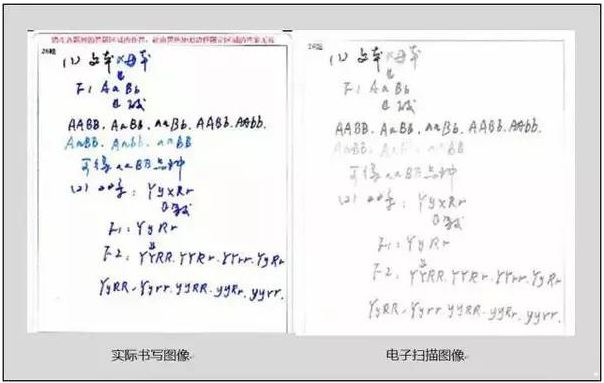 请在各题目的答题区域内作答，超出黑色矩形边框限定区域的答案无效
26题
(1) 父本×母本
↓
F1 AaBb
自交
AABB. AaBB. aaBb. AABb. AAbb.
AaBB. Aabb. aaBB
可得aaBB品种
(2) 
: YyxRr
F1: YyRr
F2: YYRR. YYRr. YYrr. YyRr
YyRR. Yyrr. yyRR. yyRr. yyrr.
实际书写图像
26题
(1) 父本×母本
F1 AaBb
自交
AABB. AaBB. aaBb. AABb. AAbb.
可得aaBB品种
(2)
: YyxRr
F1: YyRr
F2: YYRR. YYRr. YYrr. YyRr
YyRR. Yyrr. yyRR. yyRr. yyrr.
电子扫描图像